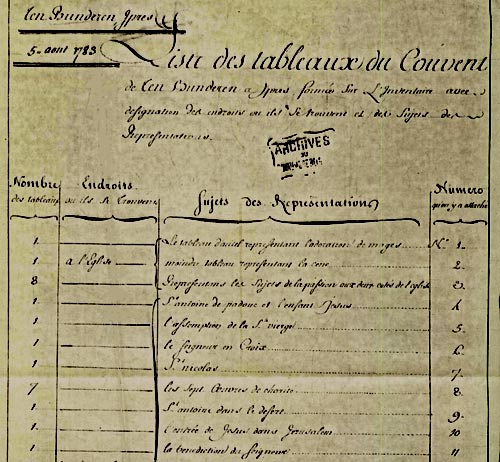 Ten Bunderen, Ypres
5. aout 1783
Liste des tableaux du Couvent
de Ten Bunderen a Ypres formée sur L'Inventaire avec
designation des endroits ou ils se trouvent et des Sujets des
Representations.
ARCHIVES
DU
Nombre des tableaux
Endroits ou ils se trouvent
Sujets des Representations
Numéro qu'on y a attaché
1 Le tableau d'autel representant l'adoration de mages N.º 1.
1 a l'Eglise moindre tableau representant la cene 2.
8 Representans les Sujets de la passion aux deux cotés de l'eglise 3.
1 St. antoine de padoue et l'enfant Jesus 4
1 l'assomption de la Ste. vierge 5.
1 le seigneur en Croix 6.
1 St. nicolas 7.
7 les Sept Œuvres de charité 8
1 St. antoine dans le desert 9.
1 l'entrée de Jesus dans Jerusalem 10
1 la benediction du seigneur 11